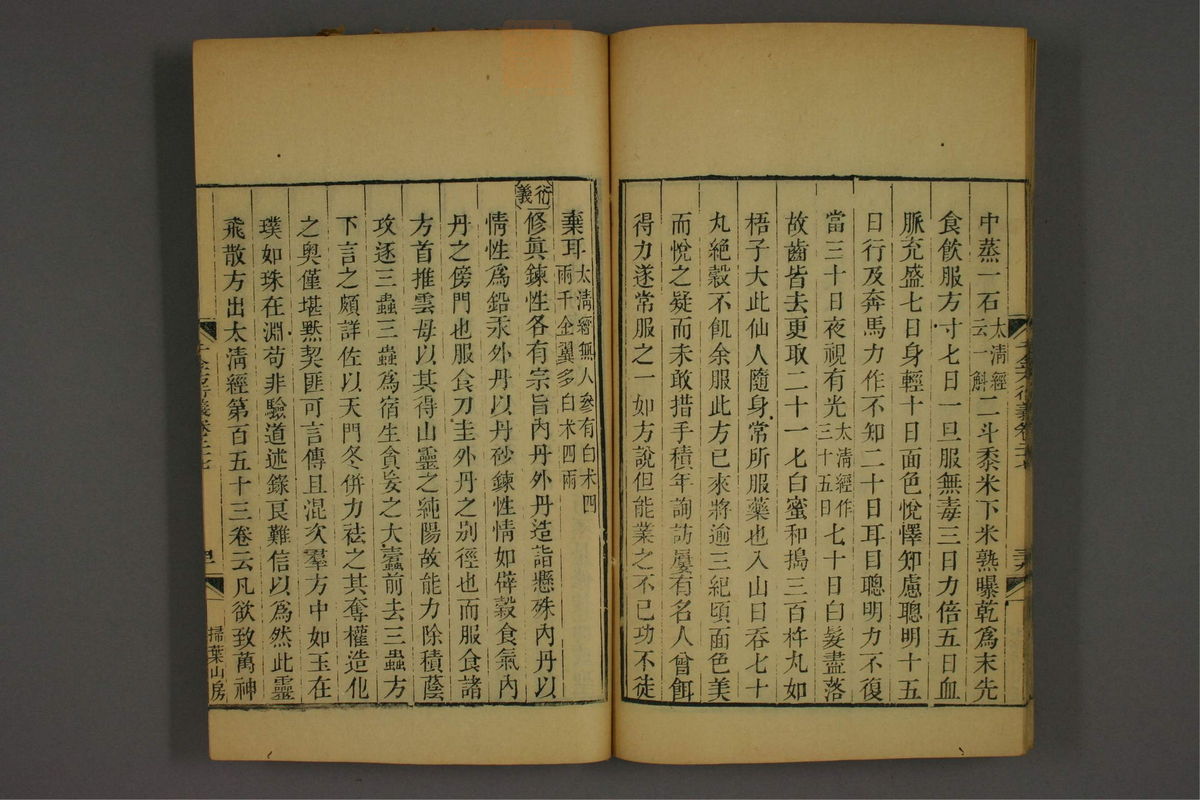 中蒸一石太淸經云一斛二斗黍米下米熟曝乾爲末先
食飲服方寸七日一旦服無毒三日力倍五日血
脈充盛七日身輕十日面色悅懌知慮聰明十五
日行及奔馬力作不知二十日耳目聰明力不復
當三十日夜視有光太淸經作三十五日七十日白髮盡落
故齒皆去更取二十一七白蜜和搗三百杵丸如
梧子大此仙人隨身常所服藥也入山日吞七十
丸絕穀不飢余服此方已來將逾三紀頃面色美
而悅之疑而未敢措手積年詢訪屢有名人曾餌
得力遂常服之一如方說但能業之不已功不徒
棄耳太淸經無人參有白朮四兩千金翼多白朮四兩
衍義
修眞鍊性各有宗旨內丹外丹造詣懸殊內丹以
情性爲鉛汞外丹以丹砂鍊性情如辟穀食氣內
丹之傍門也服食刀圭外丹之別徑也而服食諸
方首推雲母以其得山靈之純陽故能力除積蔭
攻逐三蟲三蟲爲宿生貪妄之大蠹前去三蟲方
下言之頗詳佐以天門冬併力祛之其奪權造化
之奧僅堪黙契匪可言傳且混次羣方中如玉在
璞如珠在淵苟非驗道述錄艮難信以爲然此靈
飛散方出太淸經第百五十三卷云凡欲致萬神
掃葉山房